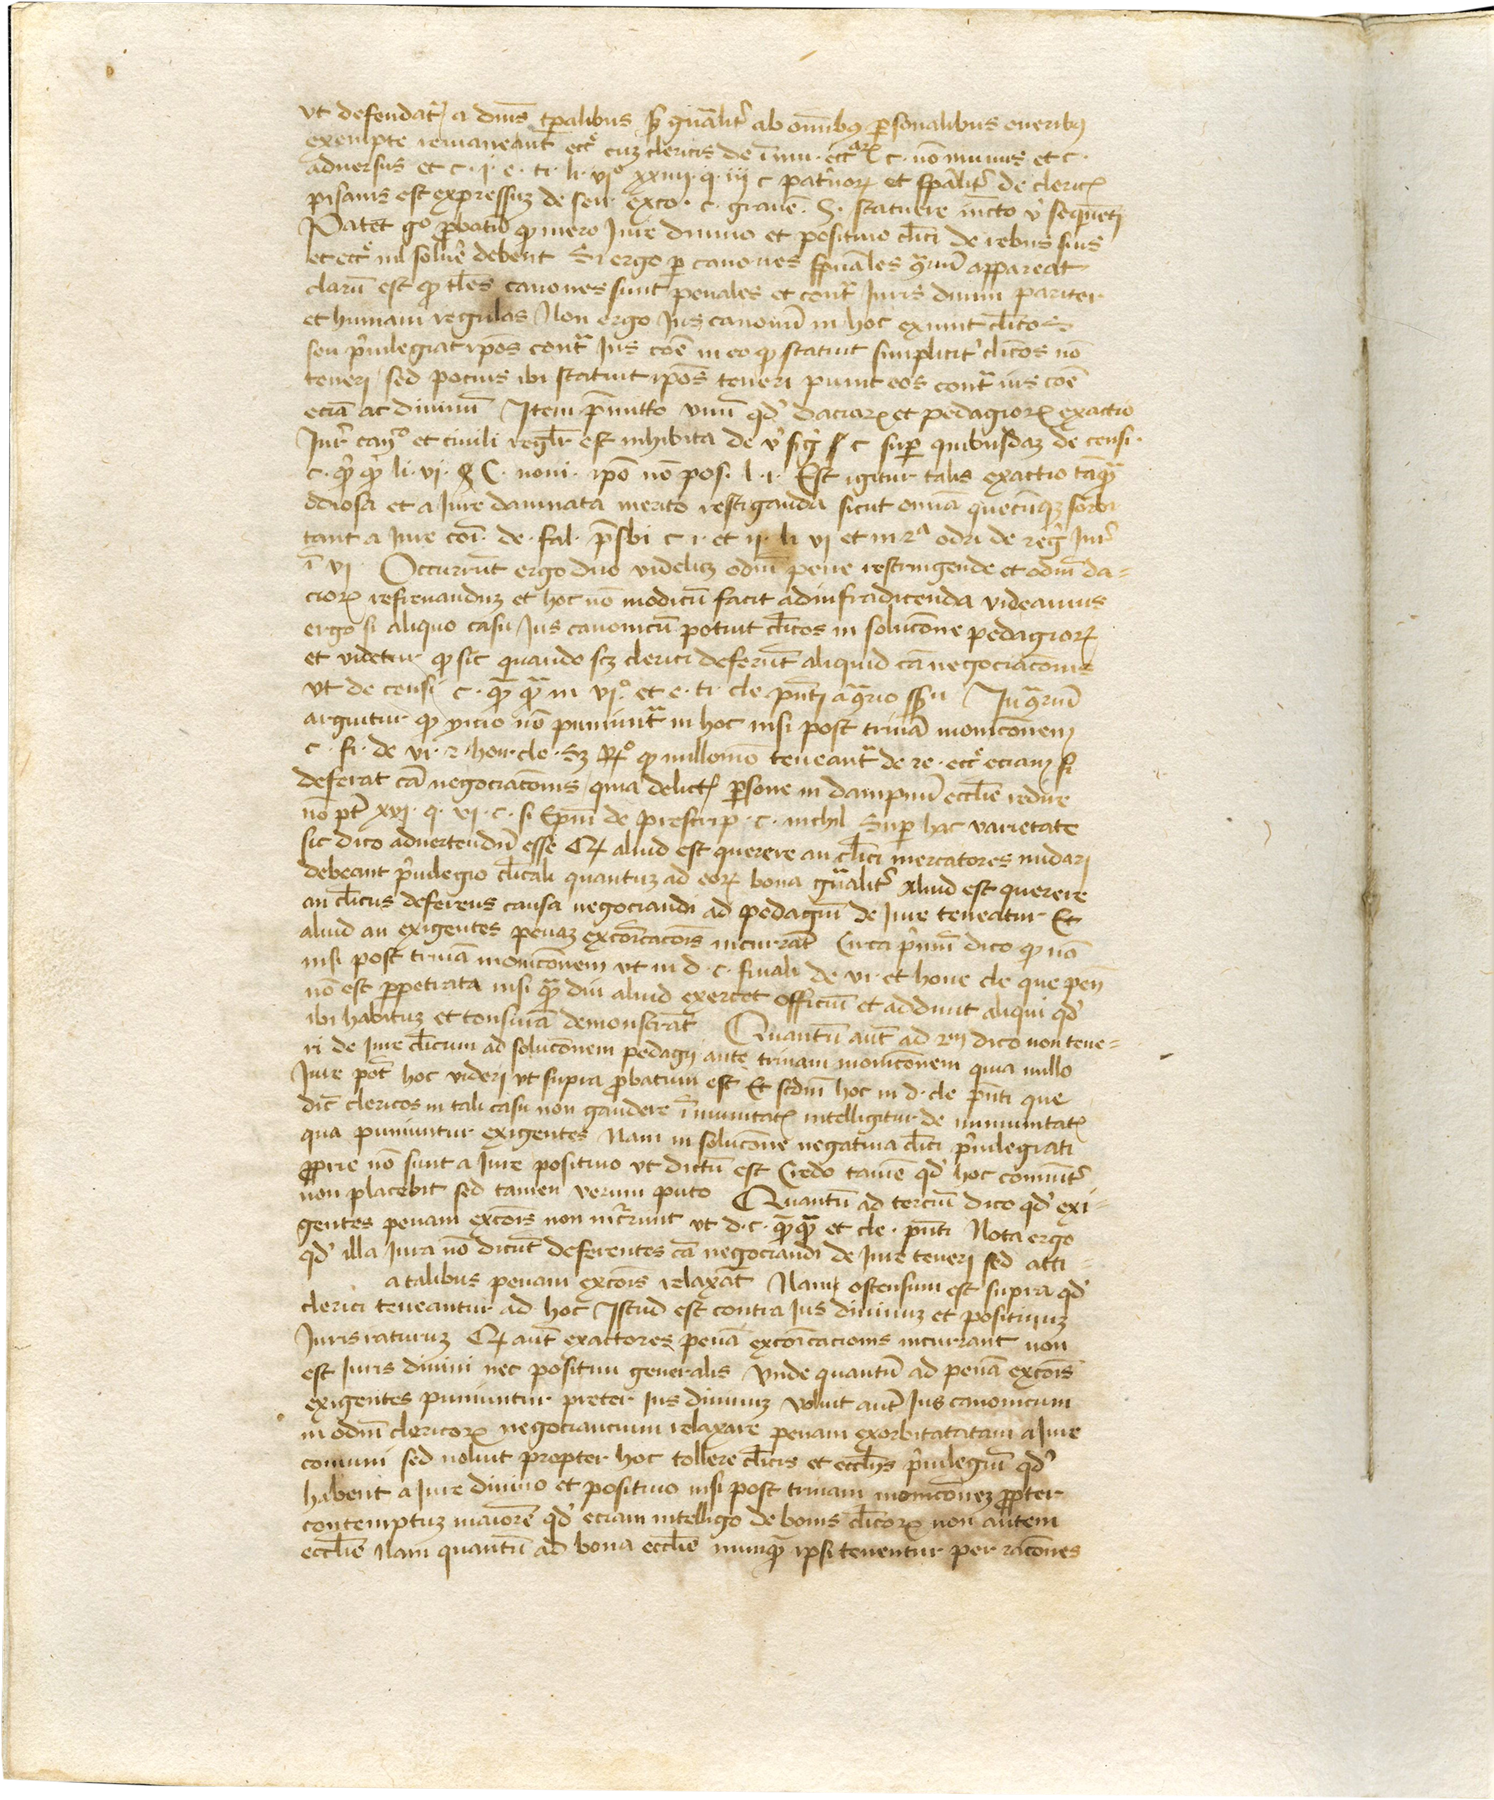 vt defendat᷑ a dm̄s tp̄alibus sꝫ gn̄alit᷑ ab om̄ibꝰ ꝑsonalibus oneribꝰ
exempte remaneant ecc̄ cuꝫ clericis de īmu· ecc̄aꝝ c· nō minus et c·
aduersus et c· i· e· ti· li· viº xxiiii· q· iii c
pisanis est expressuꝫ de sen· exco· c· grauē· S· statuere iūcto v̊ sequēti
Patet gº ꝓbatū qꝫ mero Iure diuino et positiuo cl̄ici de rebus suis
et ecc̄ nil soluē debent Si ergo ꝑ canones sp̄uales ꝯr̄iū appareat
clarū est qꝫ tl̄es canones sunt penales et contᵃ Iuris diuini pariter
et humani regulas Non ergo Ius canonicū in hoc eximit cl̄icos
seu p᷑uilegiat ip̄os contᵃ Ius cōe in eo qꝫ statuit simplicit᷑ cl̄icos nō
teneri sed pocius ibi statuit ip̄os teneri punit eos contᵃ ius cōe
eciā ac diuinū Item p̄mitto vnū qd᷑ daciaꝝ et pedagioꝝ exactio
Iur᷑ canº et ciuili regl̄r est inhibita de v̊ sig᷑ c super quibusdaꝫ de censi·
c· qᷓ qᷓ li· vi· C· noui· ipō nō pos· l· i· Est igitur talis exactio tāqᷓ
odiosa et a Iure damnata merito restiganda sicut omnia quecūqꝫ
tant a Iure coī· de· fal· p̄sbi c i· et ii· li vi et in odia de reg᷑ Iur᷑
ī vi Occurrūt ergo duo videlicꝫ odiū pene restringende et odiū da=
cioꝝ refrenanduꝫ et hoc nō modicū facit ad infra dicenda videamus
ergo si aliquo casu Ius canonicū potuit cl̄icos in soluc̄one pedagioꝝ
et videtur qꝫ sic quando scꝫ clerici deferūt aliquid cā negociac̄onis
vt de censi c· qᷓ qᷓ in viº· et e· ti· cle p̄nti In ꝯr̄iū
arguitur qꝫ ymo nō puniūtᷓ in hoc nisi post trinā monic̄onem
c· fi· de vi· ⁊ hon· cle· Sꝫ qꝫ nullomō teneantᷓ de re· ecc̄ eciam si
deferat cā negociac̄onis quia delictꝭ ꝑsone in dampnū eccl̄ie redire
nō pt᷑ xvi· q· vi· c· si Ep̄m de prescrip· c· nichil Suꝑ hac varietate
sic dico aduertendū esse aliud est querere an cl̄ici mercatores nudari
debeant p᷑uilegio cl̄icali quantuꝫ ad eoꝝ bona gn̄alit᷑ Aliud est querere
an cl̄icus deferens causa negociandi ad pedagiū de Iure teneatur Et
aliud an exigentes penaꝫ exco͞icac̄ois incurrāt Circa p᷑mū dico qꝫ nō
nisi post trinā monic̄onem vt in d· c· finali de vi· et hone cle que pen̄
nō est ꝑpetrata nisi qᷓ diu aliud exercet officiū et addunt aliqui qd᷑
ibi habituꝫ et tonsurā demonstrāt Quantū aut̄ ad 2m dico non tene=
ri de Iure cl̄icum ad soluc̄onem pedagij ante trinam monic̄onem quia nullo
Iure pot̄ hoc videri vt supra ꝓbatum est Et scdm hoc in d· cle p̄nti que
dic̄ clericos in tali casu non gaudere īmunitatꝭ intelligitur de immunitatꝭ
qua puniuntur exigentes Nam in soluc̄one negatiua cl̄ici p᷑uilegiati
ꝓprie nō sunt a Iure positiuo vt dictū est Credo tamē qd᷑ hoc comūit᷑
non placebit sed tamen verum puto Quantū ad terciū dico qd᷑ exi=
gentes penam exc̄ois non incr̄runt vt d· c· qᷓqᷓ et cle· p̄nti Nota ergo
qd᷑ illa Iura nō dicūt deferentes cā negociandi de Iure teneri sed atti=
a talibus penam exc̄ois relaxāt Nam ostensum est supra qd᷑
clerici teneantur ad hoc Istud est contra Ius diuinuꝫ et positiuuꝫ
Iuris naturuꝫ aut̄ exactores penā exco͞icacionis incurrant non
est Iuris diuini nec positiui generalis Vnde quantū ad penā exc̄ois
exigentes puniuntur preter Ius diuinuꝫ voluit aut̄ Ius canonicum
in odiū clericoꝝ negociancium relaxare penam exorbitatatam a Iure
comuni sed noluit propter hoc tollere cl̄icis et eccl̄ijs p᷑uilegiū qd᷑
habent a Iure diuino et positiuo nisi post trinam monic̄oneꝫ ꝓpter
contemptuꝫ maiorē qd᷑ eciam intelligo de bonis cl̄icoꝝ non autem
eccl̄ie Nam quantū ad bona eccl̄ie nunqᷓ ipsi tenentur per rac̄ones